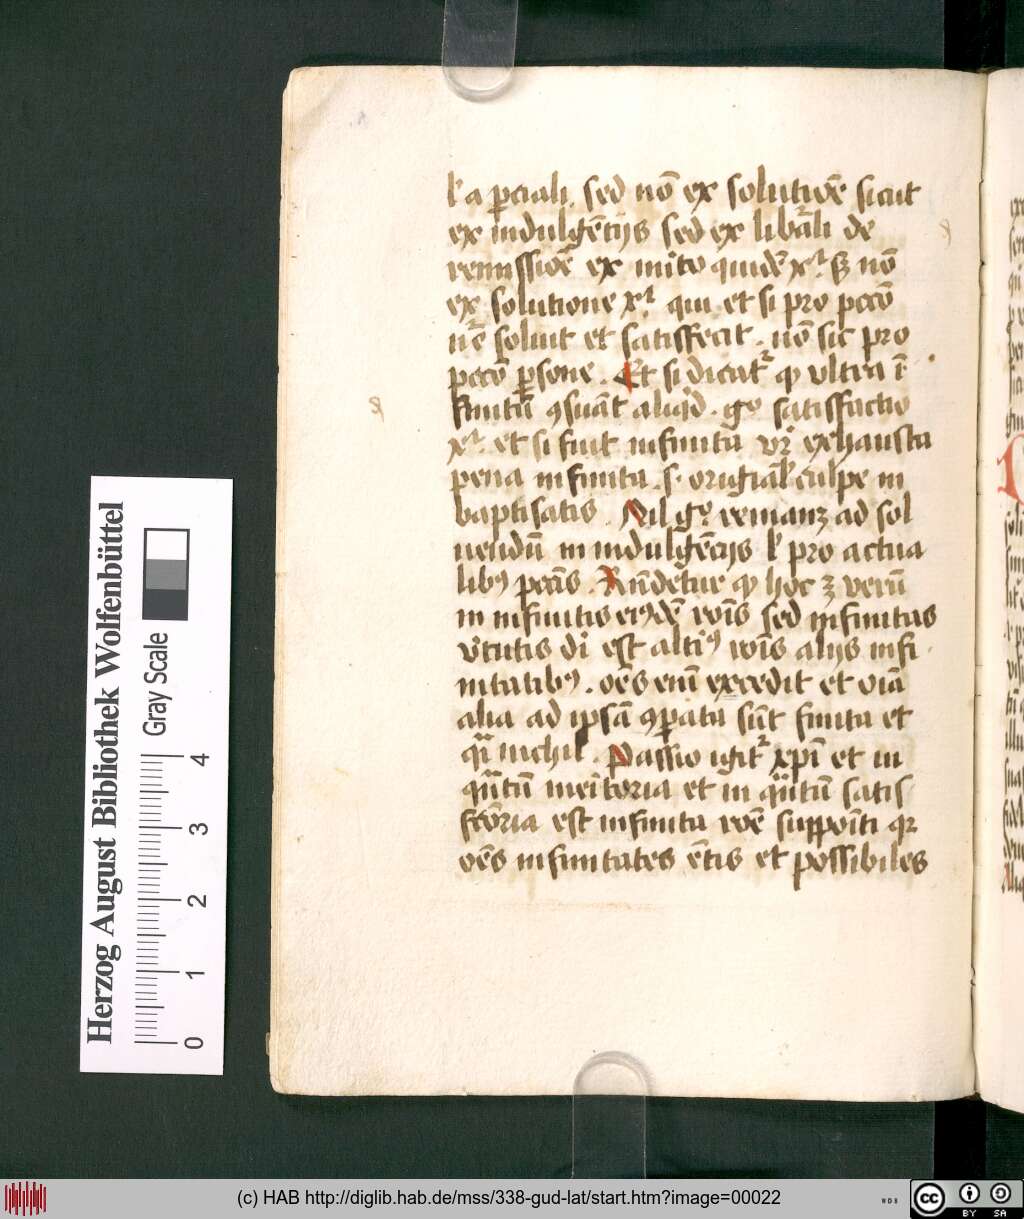 l' a parciali. sed nō ex solutiōe sicut
ex indulgētijs sed ex lib̄ali de
remissiōe ex mito quidē xͥ. sꝫ nō
ex solutione xͥ qui et si pro pctō
nr̄e soluit et satisfecit. nō sic pro
pctō ꝑsone. Et si dicat᷑ ꝙ vltra ī
finitū ꝯsuāt aliqd. gͦ satisfactio
xͥ. et si fuit infinita vr̄ exhausta
pena infinita. s. origīal' culpe in
baptisatis. Nil gͦ remanꝫ ad sol
uendū in indulgētijs l' pro actua
libꝰ pctīs. Rn̄detur ꝙ hoc ꝫ verū
in infinitis eiꝰdē rōis sed infinitas
v̄tutis di est altiꝰ rōis alijs infi
nitatibꝰ. oēs enī excedit et oīa
alia ad ipsā ꝯꝑata sūt finita et
q̄i nichil. Passio igit᷑ xp̄i et in
q̄ntū meritoria et in q̄ntū satis
fcōria est infinita rōe suppoīti qꝛ
oēs infinitates ētis et possibiles
Herzog August Bibliothek Wolfenbüttel
Gray Scale
0 1 2 3 4
(c) HAB http://diglib.hab.de/mss/338-gud-lat/start.htm?image=00022
WDB
cc BY SA